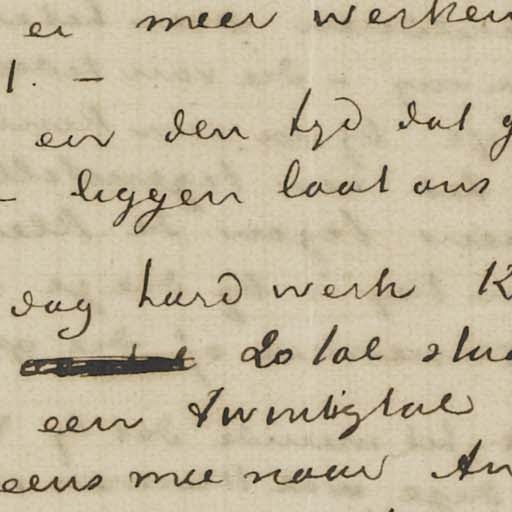 er meer werken
1. –
en den tyd dat g
– liggen laat ons
dag hard werk K
20 tal stud
een twintigtal
eens mee naar An